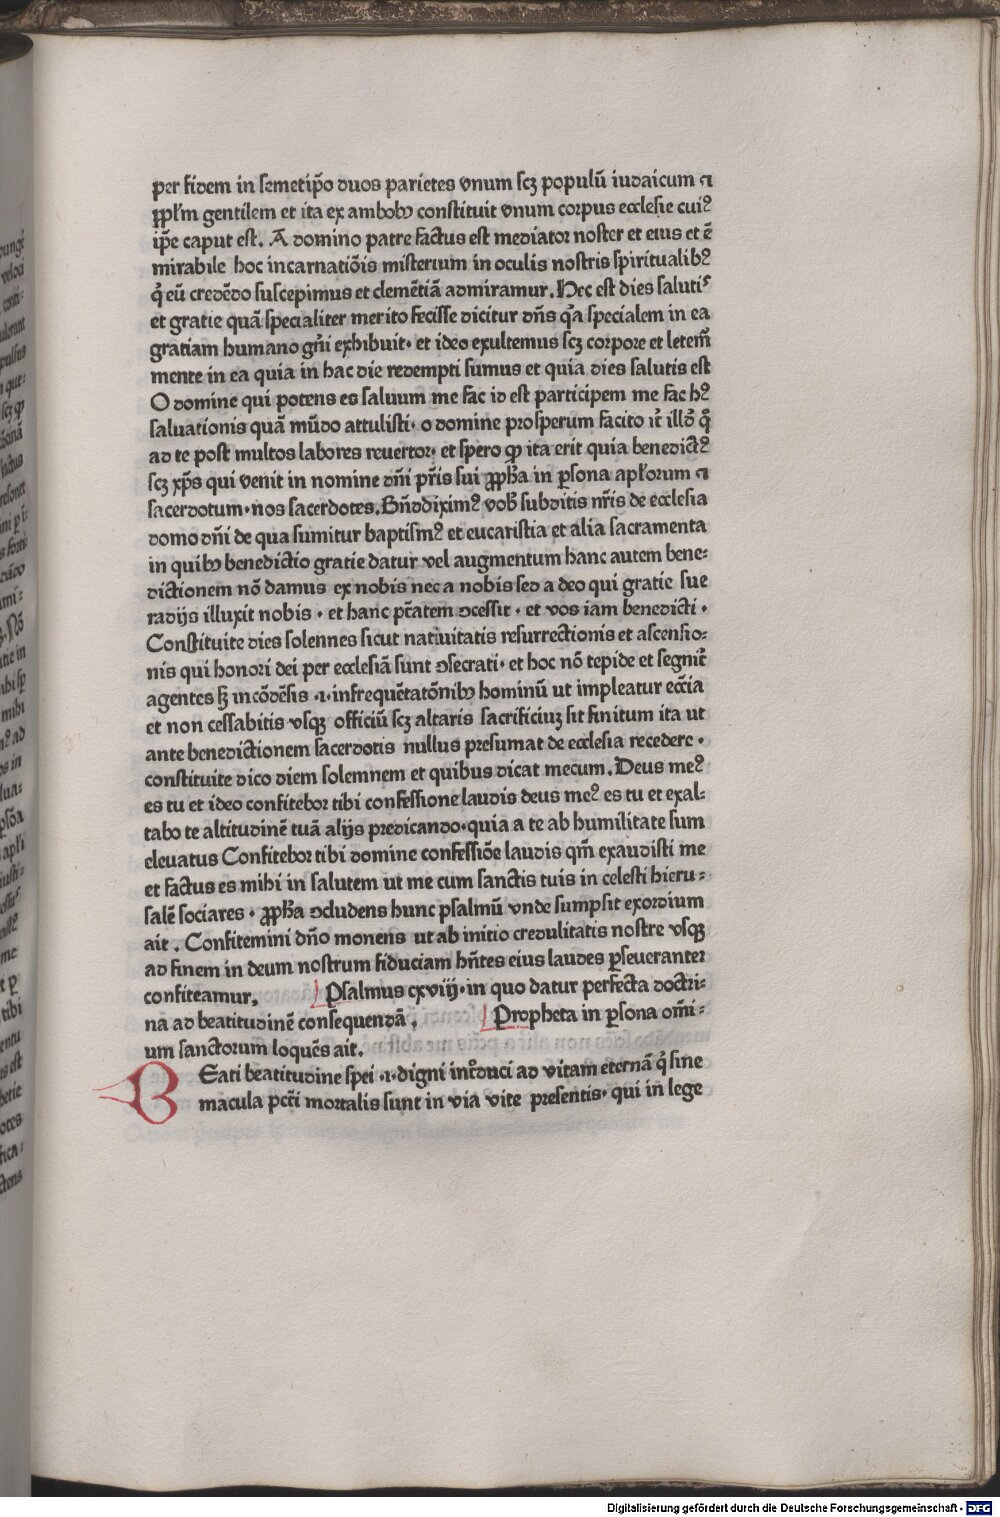 per fidem in semetip̄o duos parietes vnum scꝫ populū iudaicum ⁊
ꝓpl'm gentilem et ita ex ambobꝫ constituit vnum corpus ecclesie cui⁹
ip̄e caput est. A domino patre factus est mediator noster et eius et ē
mirabile hoc incarnatiōis misterium in oculis nostris spiritualib⁹
q̇ eū credēdo suscepimus et clemētiā admiramur. Hec est dies salutis
et gratie quā specialiter merito fecisse dicitur dn̄s q̇a specialem in ea
gratiam humano gn̄i exhibuit· et ideo exultemus scꝫ corpore et letem̄
mente in ea quia in hac die redempti sumus et quia dies salutis est
O domine qui potens es saluum me fac id est participem me fac h⁹
saluationis quā mūdo attulisti· o domine prosperum facito it̄ illd̄ q̇
ad te post multos labores reuertor· et spero ꝙ ita erit quia benedict⁹
scꝫ xp̄s qui venit in nomine dn̄i pr̄is sui ꝓpħa in ꝑsona apl'orum ⁊
sacerdotum·nos sacerdotes. Bn̄dixim⁹ vob̄ subditis nr̄is de ecclesia
domo dn̄i de qua sumitur baptism⁹ et eucaristia et alia sacramenta
in quibꝫ benedictio gratie datur vel augmentum hanc autem bene⸗
dictionem nō damus ex nobis nec a nobis sed a deo qui gratie sue
radijs illuxit nobis · et hanc p̄tatem ↄcessit · et vos iam benedicti ·
Constituite dies solennes sicut natiuitatis resurrectionis et ascensio⸗
nis qui honori dei per ecclesiā sunt ↄsecrati· et hoc nō tepide et segnit̄
agentes sꝫ in cōdēsis ·ı· infrequētatōnibꝫ hominū ut impleatur ecc̄ia
et non cessabitis vsqꝫ officiū scꝫ altaris sacrificiuꝫ sit finitum ita ut
ante benedictionem sacerdotis nullus presumat de ecclesia recedere ·
constituite dico diem solemnem et quibus dicat mecum. Deus me⁹
es tu et ideo confitebor tibi confessione laudis deus me⁹ es tu et exal⸗
tabo te altitudinē tuā alijs predicando·quia a te ab humilitate sum
eleuatus Confitebor tibi domine confessiōe laudis qm̄ exaudisti me
et factus es mihi in salutem ut me cum sanctis tuis in celesti hieru⸗
salē sociares · ꝓpħa ↄcludens hunc psalmū vnde sumpsit exordium
ait . Confitemini dn̄o monens ut ab initio credulitatis nostre vsqꝫ
ad finem in deum nostrum fiduciam hn̄tes eius laudes ꝑseueranter
confiteamur. Psalmus cxviij·in quo datur perfecta doctri⸗
na ad beatitudinē consequendā . Propheta in ꝑsona om̄i⸗
um sanctorum loquēs ait.
Beati beatitudine spei ·ı· digni int̄duci ad vitam eternā q̇ sine
macula pcc̄i mortalis sunt in via vite presentis· qui in lege
Digitalisierung gefördert durch die Deutsche Forschungsgemeinschaft - DFG